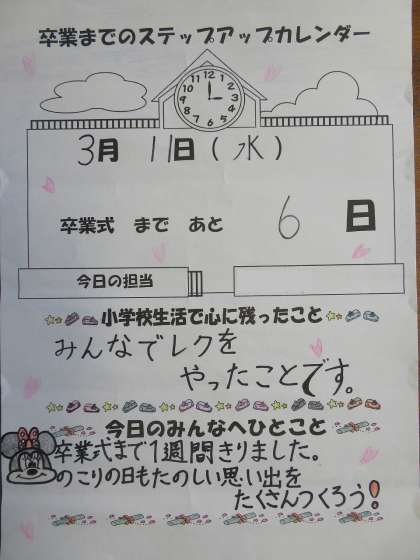 卒業までのステップアップカレンダー
12
11 1
10 2
9 3
8 4
7 5
6
3月 11日(水)
卒業式 まで あと 6 日
今日の担当
小学校生活で心に残ったこと
みんなでレクを
やったことです。
今日のみんなへひとこと
卒業式まで1週間きりました。
のこりの日もたのしい思い出を
たくさんつくろう!